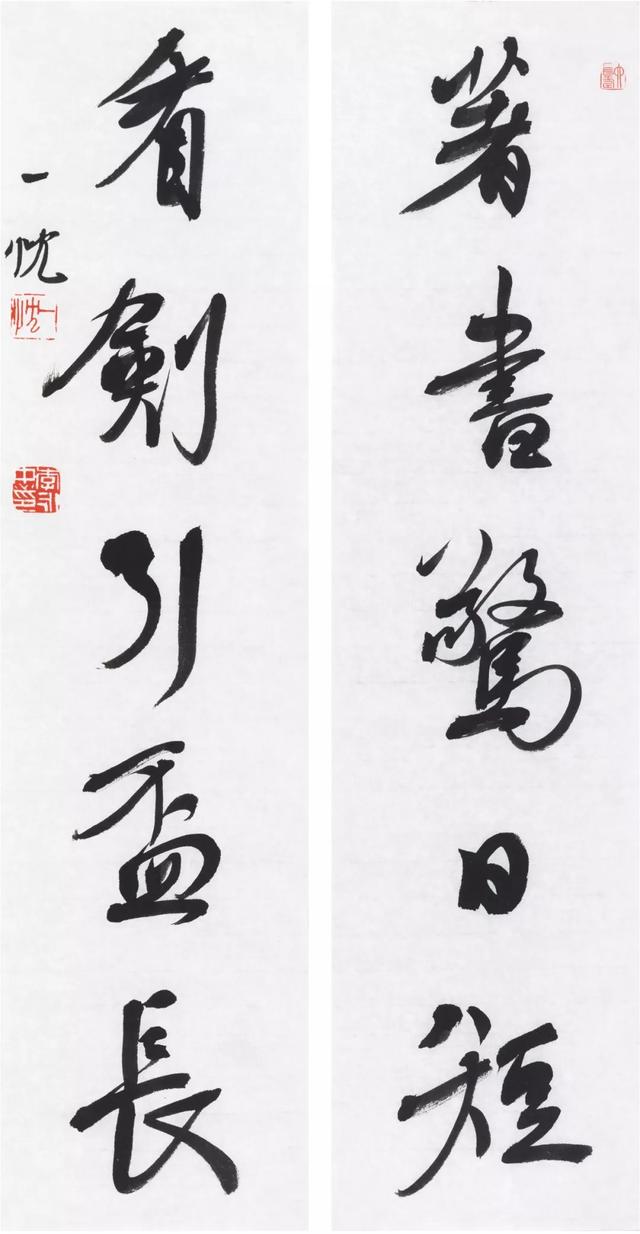 著書驚日短
看劍引盃長
一忱